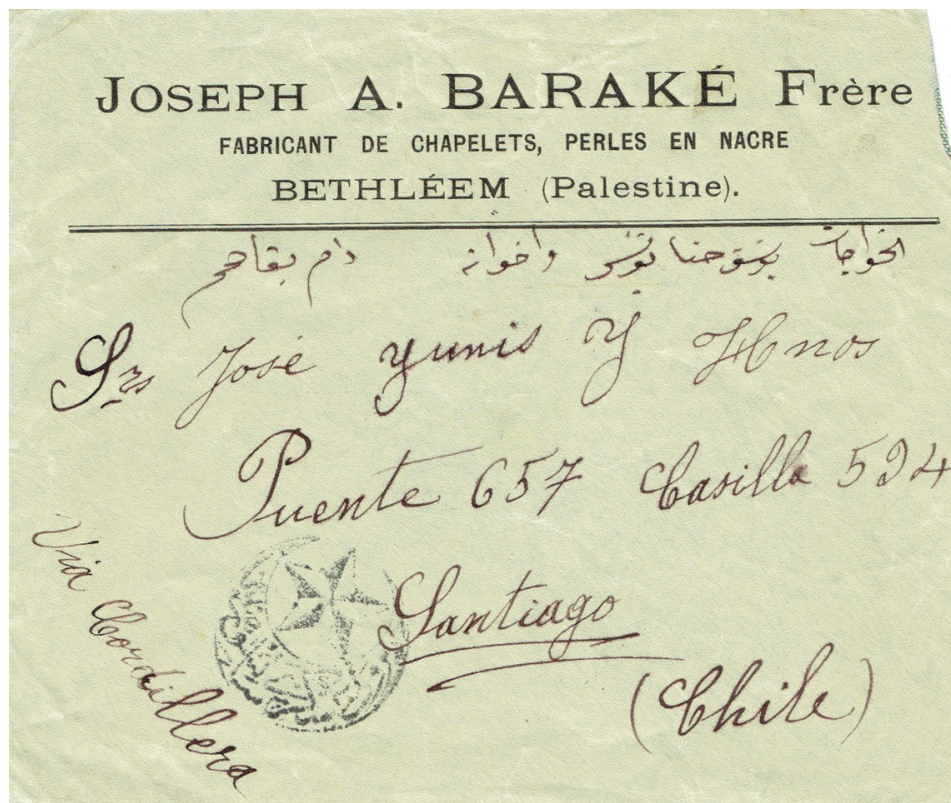 JOSEPH A. BARAKÉ Frère
FABRICANT DE CHAPELETS, PERLES EN NACRE
BETHLÉEM (Palestine).
الخواجات حنا يونس واخوانه دام بقاهم
Srs José Yunis Y Hnos
Puente 657 Casilla 594
Via Cordillera
Santiago
(Chile)